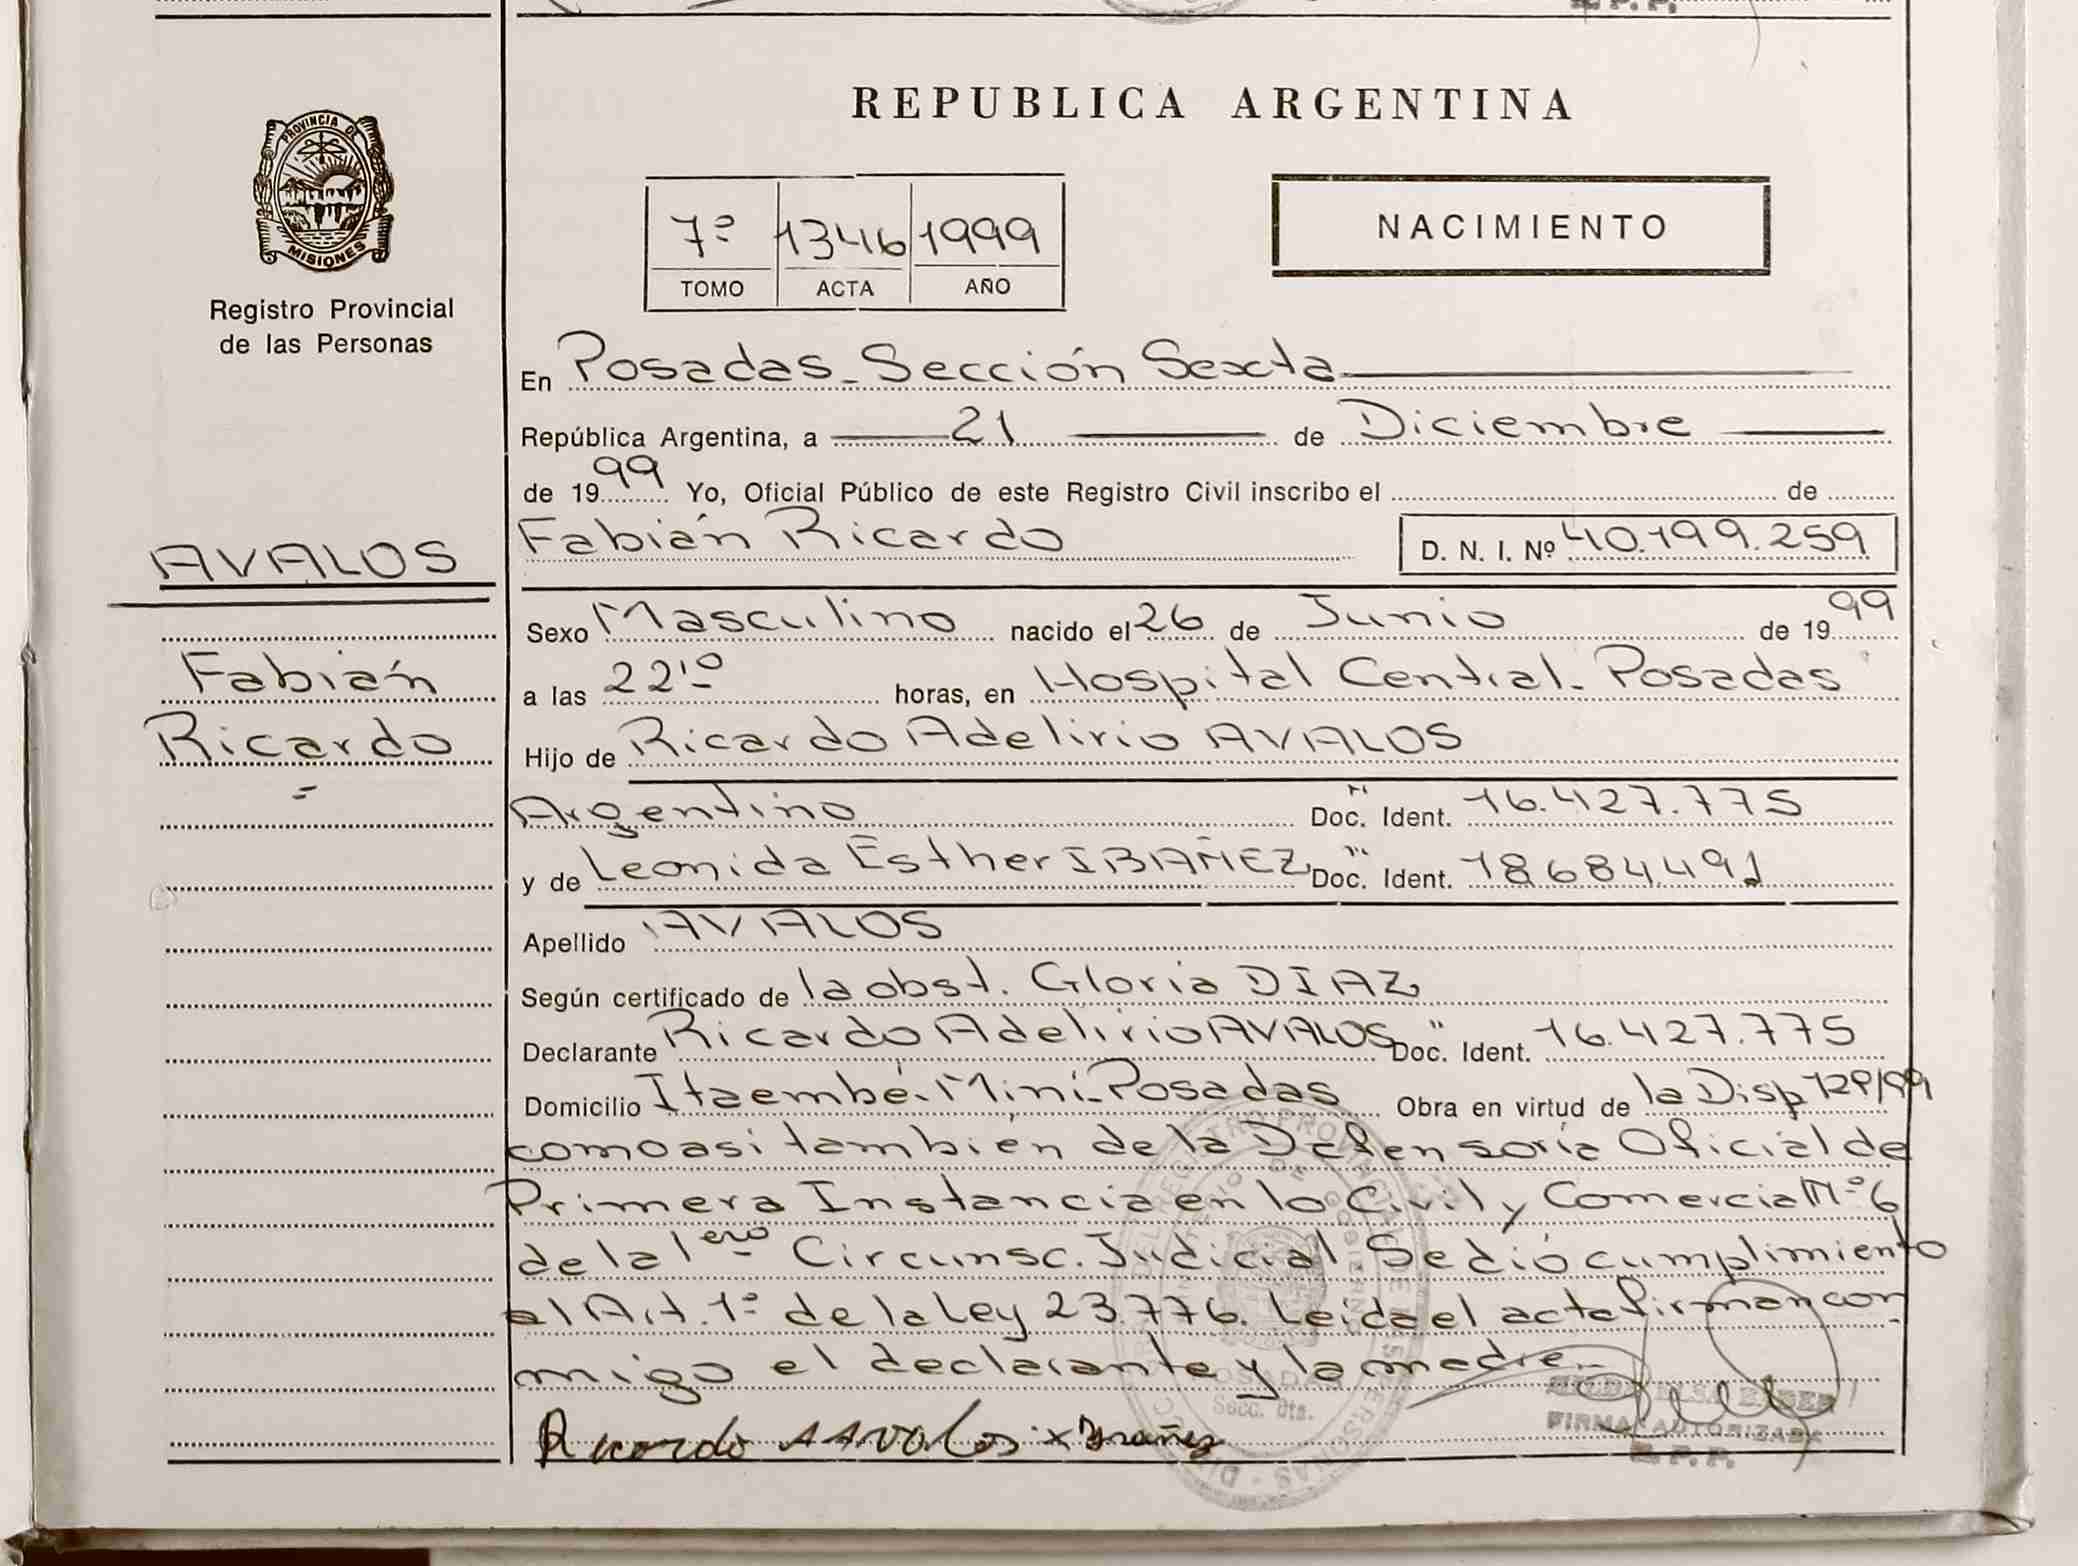 REPUBLICA ARGENTINA
PROVINCIA DE
MISIONES
Registro Provincial
de las Personas
7º 1346 1999
TOMO ACTA AÑO
NACIMIENTO
En Posadas - Sección Sexta
República Argentina, a 21 de Diciembre
de 1999 Yo, Oficial Público de este Registro Civil inscribo el de
AVALOS
Fabián Ricardo D. N. I. Nº 40.199.259
Sexo Masculino nacido el 26 de Junio de 1999
Fabián
a las 22'º horas, en Hospital Central - Posadas
Ricardo
Hijo de Ricardo Adelirio AVALOS
Argentino Doc. Ident. 16.427.775
y de Leonida Esther IBAÑEZ Doc. Ident. 18.684.491
Apellido AVALOS
Según certificado de la obst. Gloria DIAZ
Declarante Ricardo Adelirio AVALOS Doc. Ident. 16.427.775
Domicilio Itaembé - Miní - Posadas Obra en virtud de la Disp
como asi también de la Defensoría Oficial de
Primera Instancia en lo Civil y Comercial Nº 6
de la 1era Circunsc. Judicial Se dió cumplimiento
al Art. 1º de la Ley 23.776. Leida el acta firman con
migo el declarante y la madre.-
Ricardo A Avalos x Ibañez
POSADAS
Secc. 6ta.
FIRMA AUTORIZADA
R. P. P.